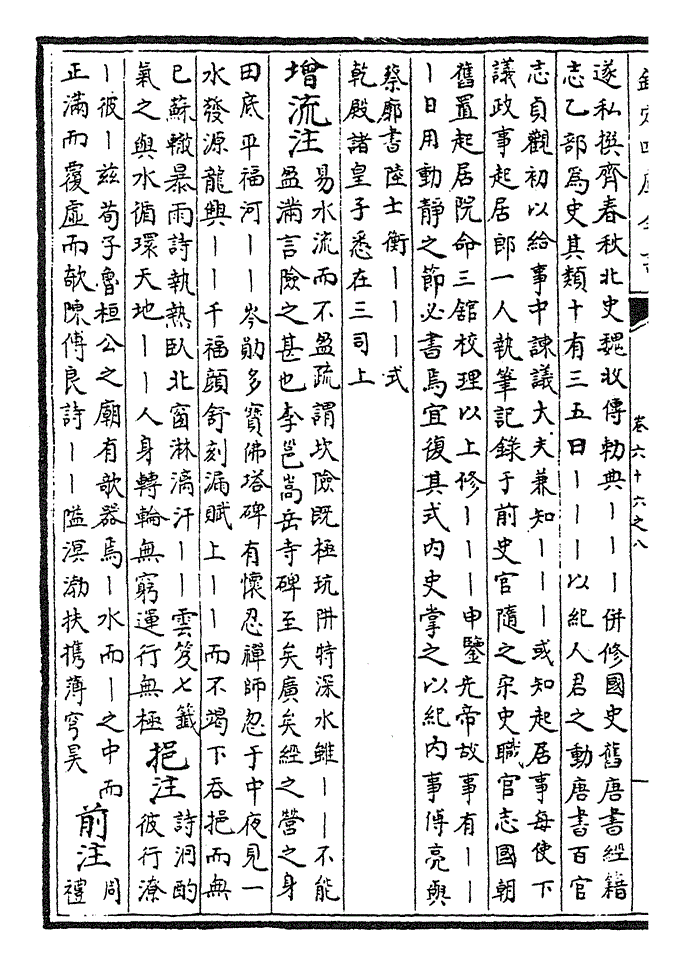 欽定四庫全書
卷六十六之八
遂私撰齊春秋北史魏收傳勅典丨丨丨併修國史舊唐書經籍
志乙部為史其類十有三五日丨丨丨以紀人君之動唐書百官
志貞觀初以給事中諫議大夫兼知丨丨丨或知起居事每使下
議政事起居郎一人執筆記錄于前史官隨之宋史職官志國朝
舊置起居院命三舘校理以上修丨丨丨申鑒先帝故事有丨丨
丨日用動靜之節必書焉宜復其式内史掌之以紀内事傅亮與
蔡廓書陸士衡丨丨丨式
乾殿諸皇子悉在三司上
增流注
易水流而不盈疏謂坎險既極坑阱特深水雖丨丨不能
盈滿言險之甚也李邕嵩岳寺碑至矣廣矣經之營之身
田底平福河丨丨岑勛多寶佛塔碑有懷忍禪師忽于中夜見一
水發源龍興丨丨千福顔舒刻漏賦上丨丨而不竭下吞挹而無
已蘇轍暴雨詩執熱臥北窗淋漓汗丨丨雲笈七籤
氣之與水循環天地丨丨人身轉輪無窮運行無極
挹注
詩泂酌
彼行潦
丨彼丨兹荀子魯桓公之廟有欹器焉丨水而丨之中而
正滿而覆虚而欹陳傅良詩丨丨隘溟渤扶携薄穹昊
前注
周
禮